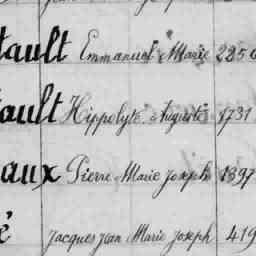 tault Emmanuel Marie 2256
ault Hippolyte Auguste 1731
aux Pierre Marie Joseph 1897
é Jacques Jean Marie Joseph 419